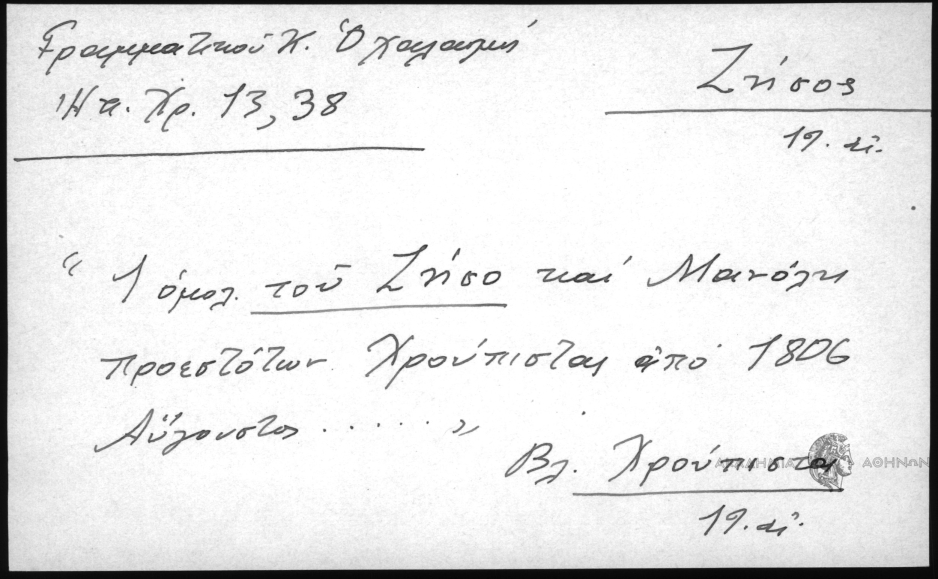 Γραμματικού Κ. Ὁ χαλασμός
Ἠπ. Χρ. 13, 38
Ζήσος
19. αἰ.
“ 1 ὁμολ. τοῦ Ζήσο καί Μανόλη
προεστότων Χρούπιστας ἀπό 1806
Αὔγουστος ..... ”
Βλ. Χρούπιστα
19. αἰ.
ΑΚΑΔΗΜΙΑ ΑΘΗΝΩΝ